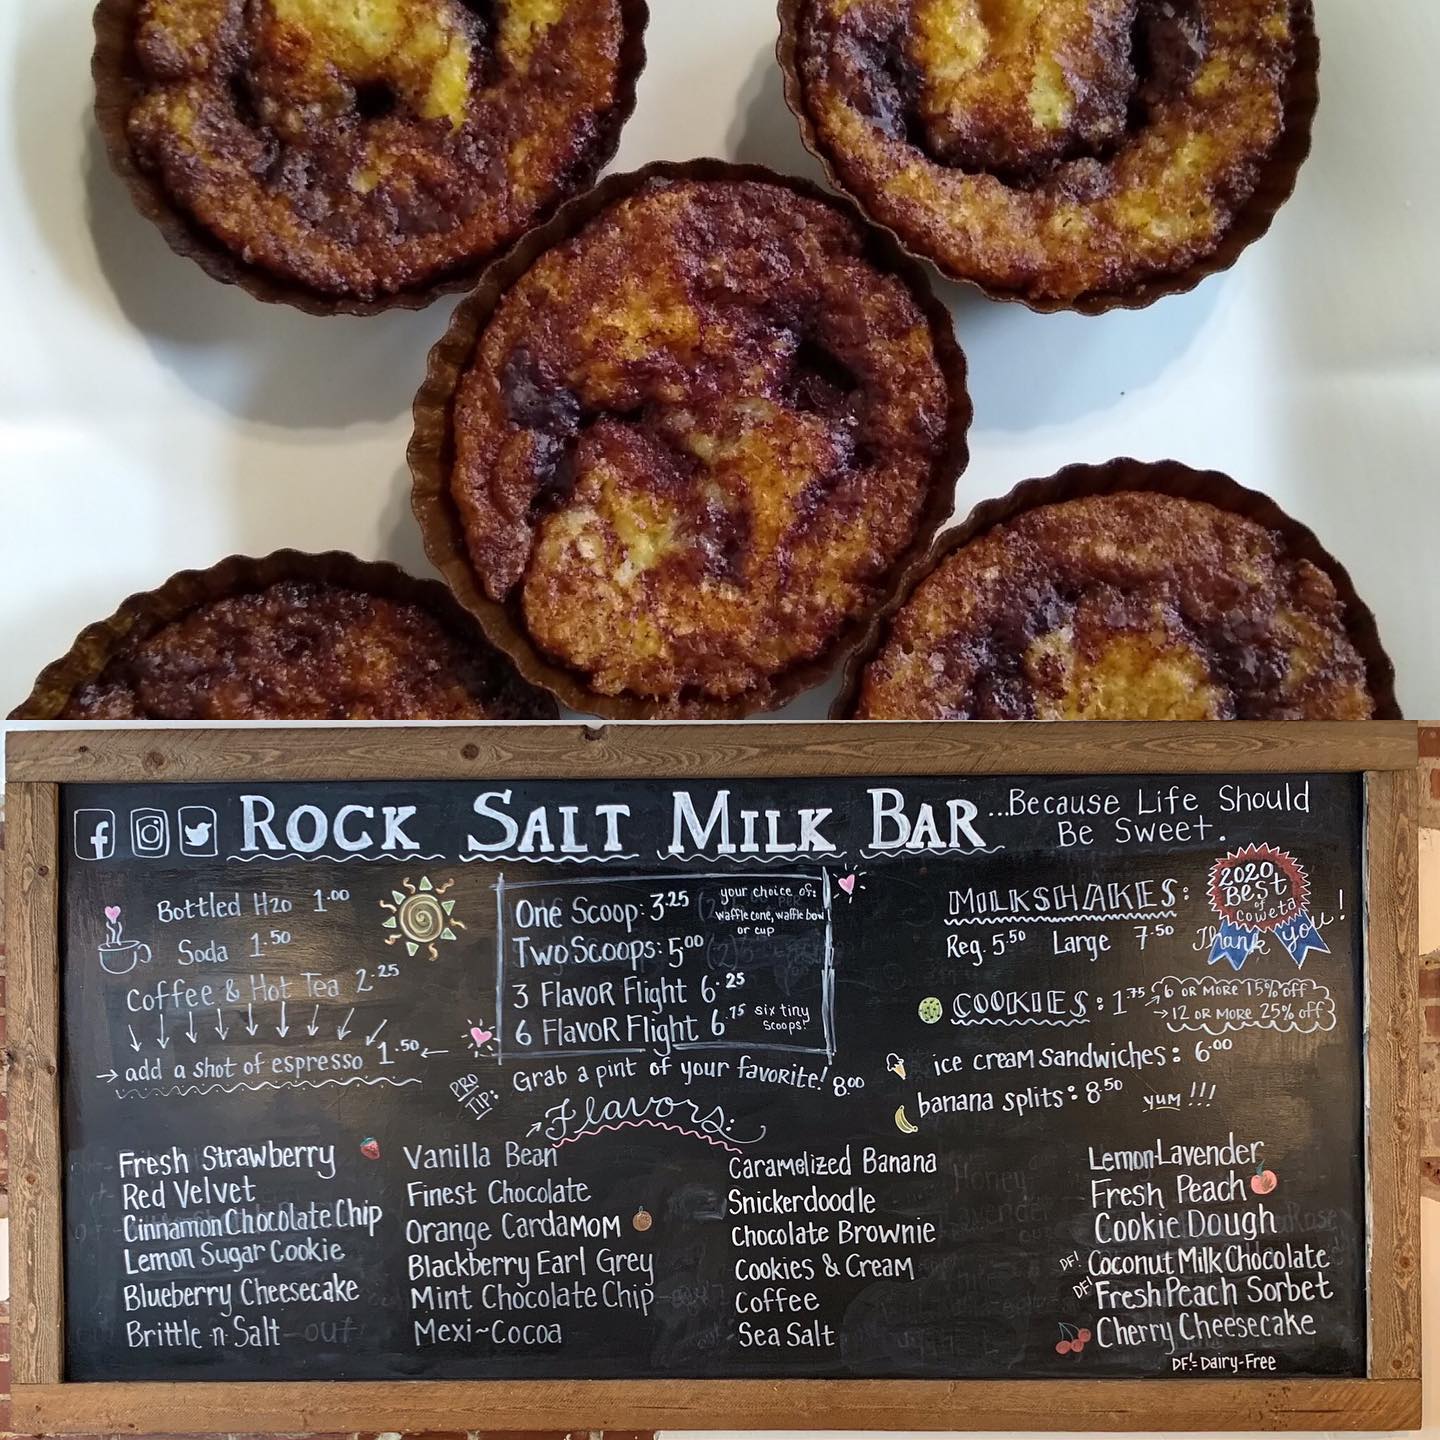 ROCK SALT MILK BAR ...Because Life Should
Be Sweet.
Bottled H2O 1.00
Soda 1.50
Coffee & Hot Tea 2.25
add a shot of espresso 1.50
One Scoop: 3.25
Two Scoops: 5.00
your choice of:
waffle cone, waffle bowl
or cup
3 Flavor Flight 6.25
6 Flavor Flight 6.75 six tiny
Scoops!
PRO
TIP:
Grab a pint of your favorite! 8.00
MILKSHAKES:
Reg. 5.50 Large 7.50
2020
Best
of
Coweta
Thank you!
COOKIES: 1.75
6 OR MORE 15% off
12 OR MORE 25% off
ice cream sandwiches: 6.00
banana splits: 8.50 yum!!!
Flavors:
Fresh Strawberry
Red Velvet
Cinnamon Chocolate Chip
Lemon Sugar Cookie
Blueberry Cheesecake
Brittle n Salt -out
Vanilla Bean
Finest Chocolate
Orange Cardamom
Blackberry Earl Grey
Mint Chocolate Chip
Mexi~Cocoa
Caramelized Banana
Snickerdoodle
Chocolate Brownie
Cookies & Cream
Coffee
Sea Salt
Lemon-Lavender
Fresh Peach
Cookie Dough
DF! Coconut Milk Chocolate
DF! Fresh Peach Sorbet
Cherry Cheesecake
DF!= Dairy-Free